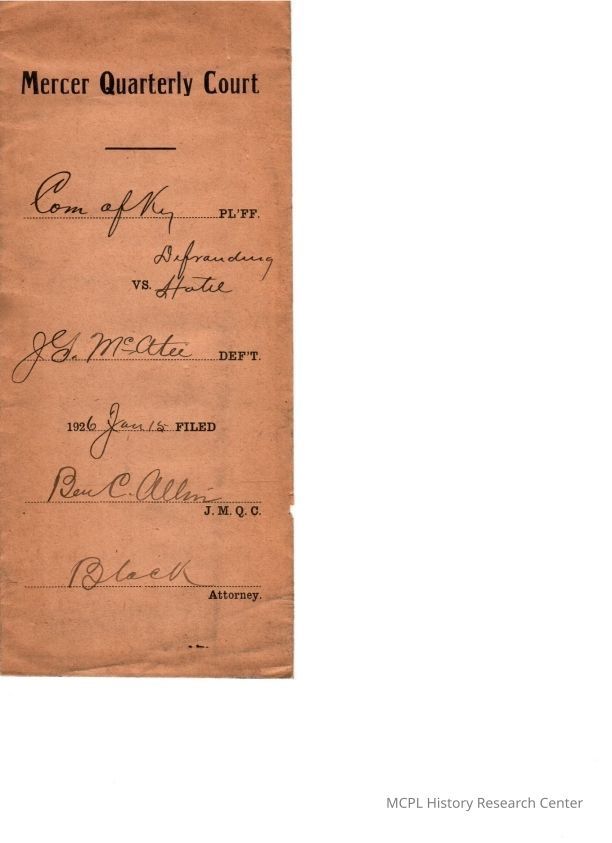 Mercer Quarterly Court
Com of Ky PL'FF.
Defrauding
VS. Hotel
J.G. McAtee DEF'T.
1926 Jan 15 FILED
Ben C. Allin
J. M. Q. C.
Black
Attorney.
MCPL History Research Center